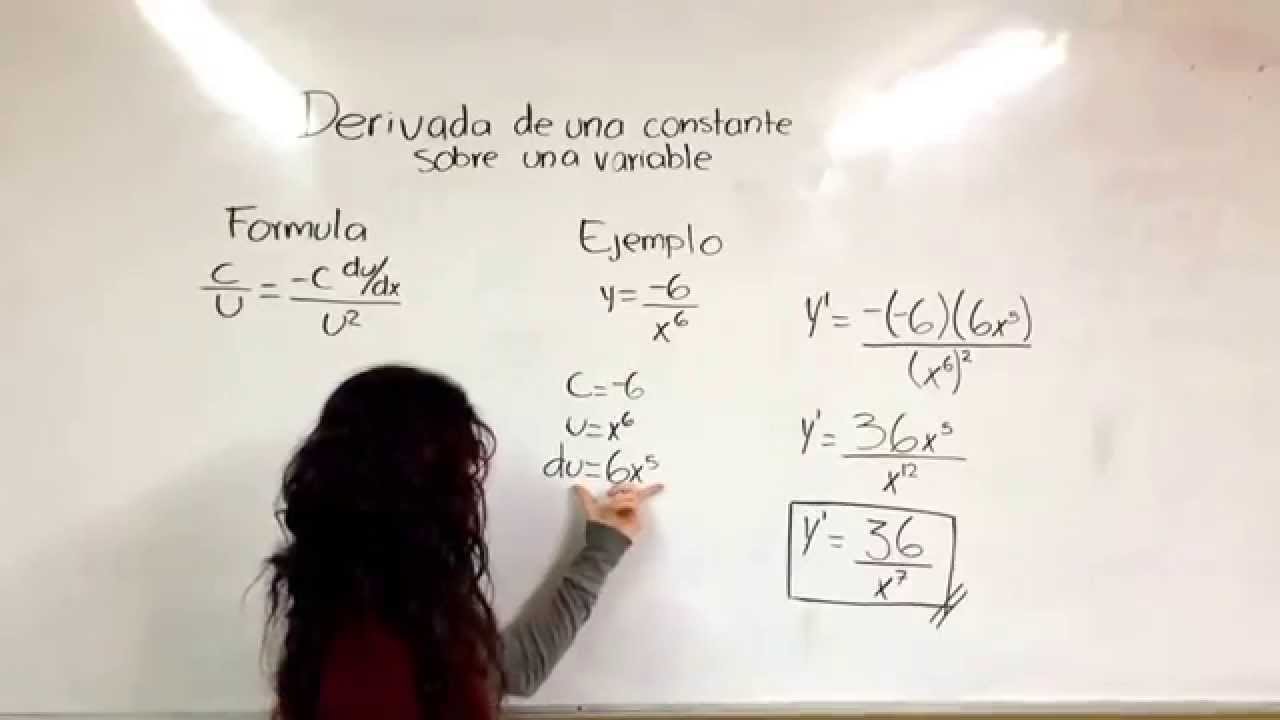 Derivada de una constante
sobre una variable
Formula
C/U = -C du/dx / U²
Ejemplo
y = -6 / x⁶
C=-6
u=x⁶
du=6x⁵
y'= -(-6)(6x⁵) / (x⁶)²
y'= 36x⁵ / x¹²
y'= 36 / x⁷